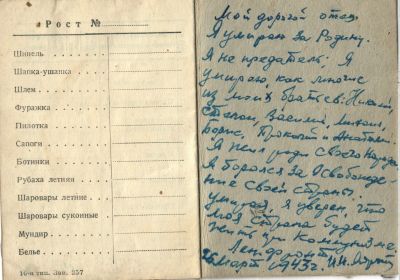 Рост №
Шинель
Шапка-ушанка
Шлем
Фуражка
Пилотка
Сапоги
Ботинки
Рубаха летняя
Шаровары летние
Шаровары суконные
Мундир
Белье
16-я тип. Зак. 257
Мой дорогой отец.
Я умираю за Родину.
Я не предатель. Я
умираю, как многие
из моих братьев: Николай,
Степан, Василий, Михаил,
Борис, Прокопий и Анатолий.
Я жил ради своего народа
Я боролся за Освобожде
ние своей Страны.
умирая, я уверен, что
моя Страна будет
жить при Коммунизме.
Март 1943г.